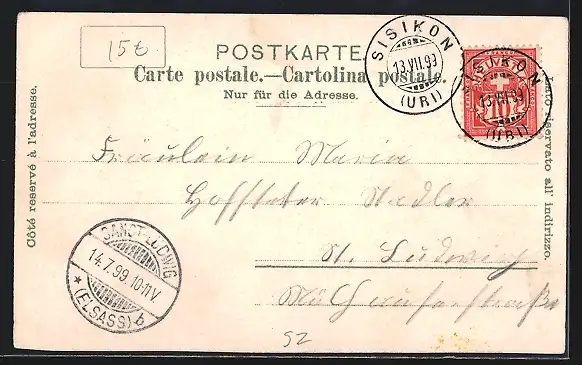 15€
POSTKARTE.
Carte postale.—Cartolina postale.
Nur für die Adresse.
Côté reservé à l'adresse.
Lato riservato all' indirizzo.
SISIKON
13.VII.99
(URI)
SISIKON
13.VII.99
(URI)
10
Fräulein Maria
Hofstetter Stadler
St. Ludwig
Mülhauserstraße
SANCT-LUDWIG
14.7.99.10-11V
* (ELSASS) b
52